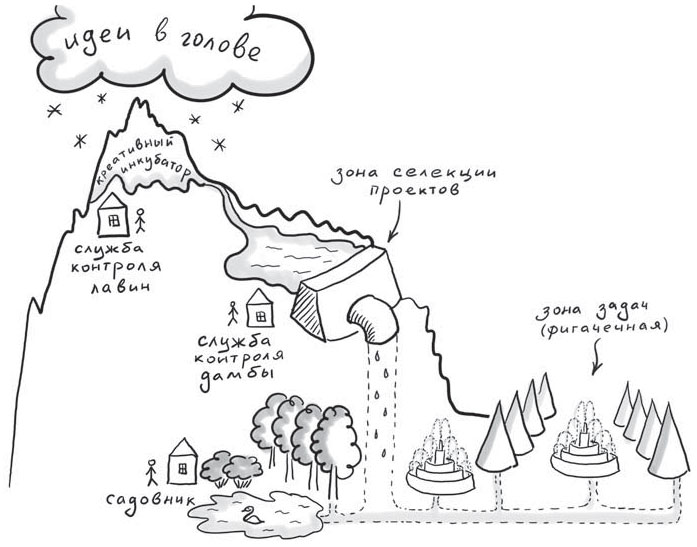 идеи в голове
креативный
инкубатор
зона селекции
проектов
служба
контроля
лавин
служба
контроля
дамбы
зона задач
(фигачечная)
садовник